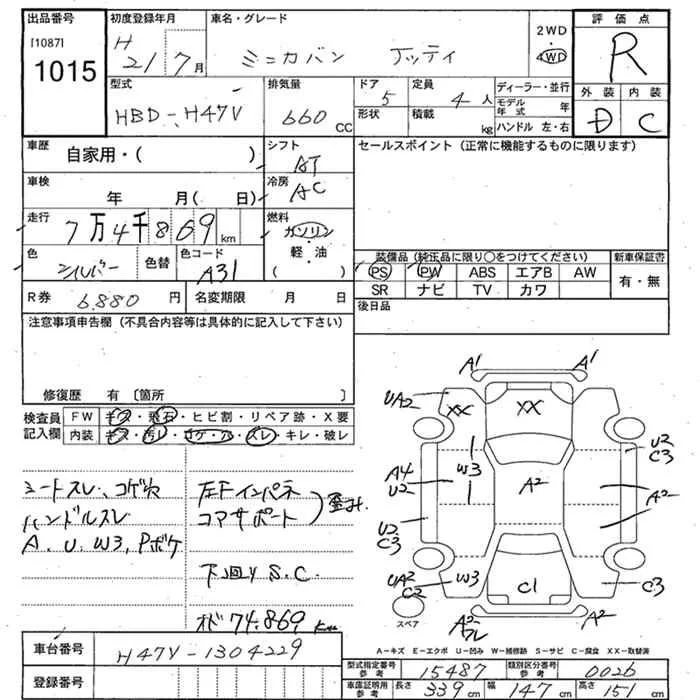 出品番号
[1087]
1015
初度登録年月
H 21/7月
車名・グレード
ミニカバン Jッティ
2WD・4WD
評価点
R
型式
HBD-H47V
排気量
660 CC
ドア
5
形状
定員
4人
積載
kg
ディーラー・並行
モデル年式 年
ハンドル 左・右
外装 内装
D C
車歴
自家用・( )
シフト
AT
セールスポイント (正常に機能するものに限ります)
車検
年 月( 日)
冷房
AC
走行
7万4千869km
燃料
ガソリン・軽・油
( )
色
シルバー
色替
色コード
A31
装備品 (純正品に限り○をつけてください)
新車保証書
PS PW ABS エアB AW
有・無
SR ナビ TV カワ
R券
6,880円
名変期限 月 日
後日品
注意事項申告欄 (不具合内容等は具体的に記入して下さい)
修復歴 有 [箇所 ]
検査員記入欄
FW キズ・飛石・ヒビ割・リペア跡・X要
内装 キズ・汚レ・コゲ・穴・スレ・キレ・破レ
シートスレ、コゲ穴
ハンドルスレ
A、U、W3、Pボケ
左Fインパネ
コアサポート
歪み
下廻りS.C.
オド74,869km
A1 A1
UA2 XX XX
U2
C3
W3
A4
U2
A2
A2
U2
C3
UA2
C2
W3
C1
C3
A2
フレ
A2
スペア
A-キズ E-エクボ U-凹み W-補修跡 S-サビ C-腐食 XX-取替済
車台番号
H47V-1304229
登録番号
型式指定番号 参考
15487
類別区分番号 参考
0026
車庫証明用 参考
長さ 339cm
幅 147cm
高さ 151cm